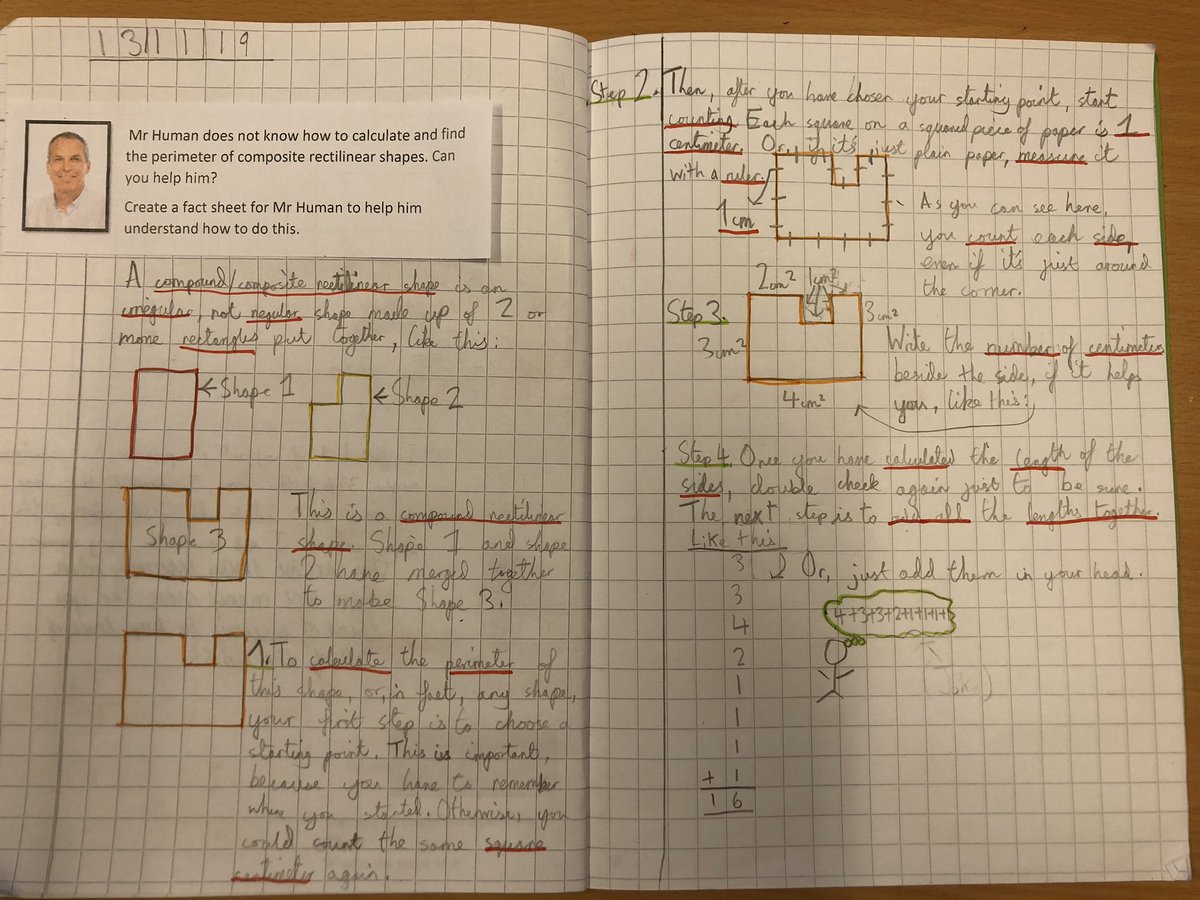 13/11/19
Mr Human does not know how to calculate and find
the perimeter of composite rectilinear shapes. Can
you help him?
Create a fact sheet for Mr Human to help him
understand how to do this.
A compound/composite rectilinear shape is an
irregular, not regular shape made up of 2 or
more rectangles put together, like this:
← Shape 1
← Shape 2
Shape 3
This is a compound rectilinear
shape. Shape 1 and shape
2 have merged together
to make Shape 3.
1. To calculate the perimeter of
this shape, or, in fact, any shape,
your first step is to choose a
starting point. This is important,
because you have to remember
where you started. Otherwise, you
could count the same square
centimeter again.
Step 2. Then, after you have chosen your starting point, start
counting. Each square on a squared piece of paper is 1
centimeter. Or, if it's just plain paper, measure it
with a ruler.
1cm
As you can see here,
you count each side,
even if it's just around
the corner.
2cm² 1cm²
Step 3.
3cm²
3cm²
4cm²
Write the number of centimeters
beside the side, if it helps
you, like this:
Step 4. Once you have calculated the length of the
sides, double check again just to be sure.
The next step is to add all the lengths together.
Like this
3
3
4
2
1
1
1
+ 1
16
Or, just add them in your head.
4+3+3+2+1+1+1+1